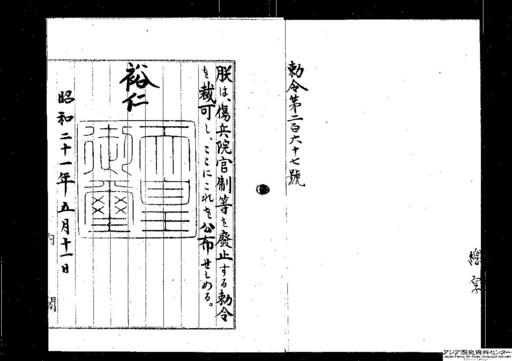 勅令第二百六十七號
朕は、傷兵院官制等を廢止する勅令
を裁可し、ここにこれを公布せしめる。
裕仁
天皇御璽
昭和二十一年五月十一日
内閣
アジア歴史資料センター